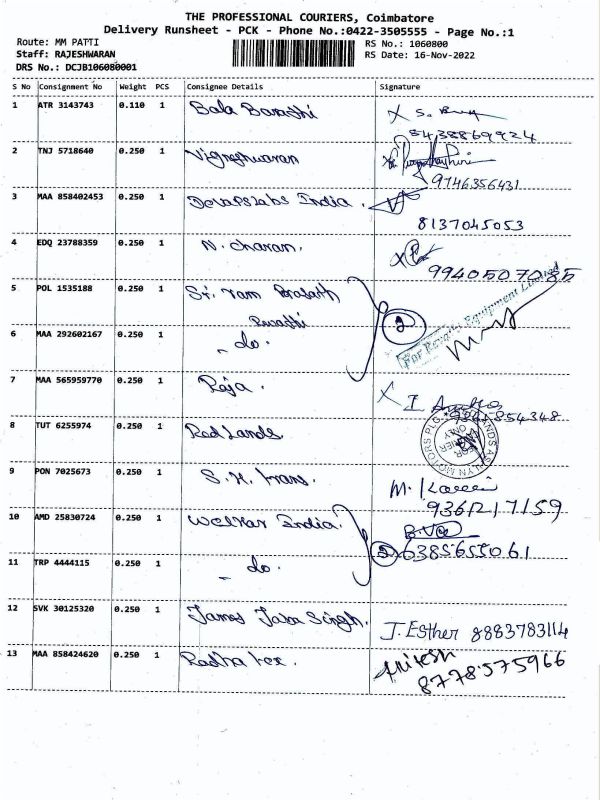 THE PROFESSIONAL COURIERS, Coimbatore
Delivery Runsheet - PCK - Phone No.:0422-3505555 - Page No.:1
Route: MM PATTI
RS No.: 1060800
Staff: RAJESHWARAN
RS Date: 16-Nov-2022
DRS No.: DCJB106080001
S No Consignment No Weight PCS Consignee Details Signature
1 ATR 3143743 0.110 1 Bala Barathi
5438869924
2 TNJ 5718640 0.250 1 Vigneshwaran
9746356431
3 MAA 858402453 0.250 1 India.
8137045053
4 EDQ 23788359 0.250 1 N. charan.
5 POL 1535188 0.250 1 Sri ram Prasath
2
For Equipment Limited
6 MAA 292602167 0.250 1 - do.
7 MAA 565959770 0.250 1 Raja.
9865854348
8 TUT 6255974 0.250 1 Red Lands
9 PON 7025673 0.250 1 S. H. trans.
M.
10 AMD 25830724 0.250 1 India.
2 6385655061
11 TRP 4444115 0.250 1 - do.
12 SVK 30125320 0.250 1 James Singh. J. Esther 8883783114
13 MAA 858424620 0.250 1 Radha tex.
8778575966